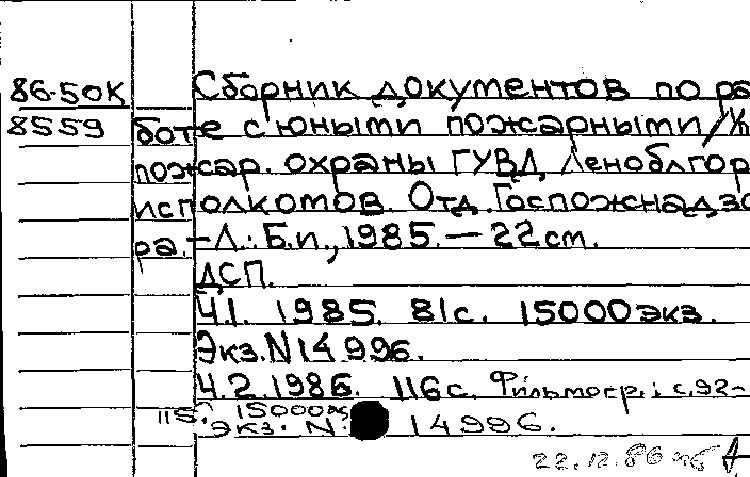 86-50К Сборник документов по ра
8559 боте с юными пожарными/Уп
пожар. охраны ГУВД Леноблгор
исполкомов. Отд. Госпожнадзо
ра. -Л.: Б.и., 1985. — 22 см.
ДСП.
Ч.1. 1985. 81с. 15000 экз.
Экз. N14996.
Ч.2. 1986. 116 с. Фильмогр.: с.92-
115. 15000 экз.
Экз. N 14996.
22.12.86